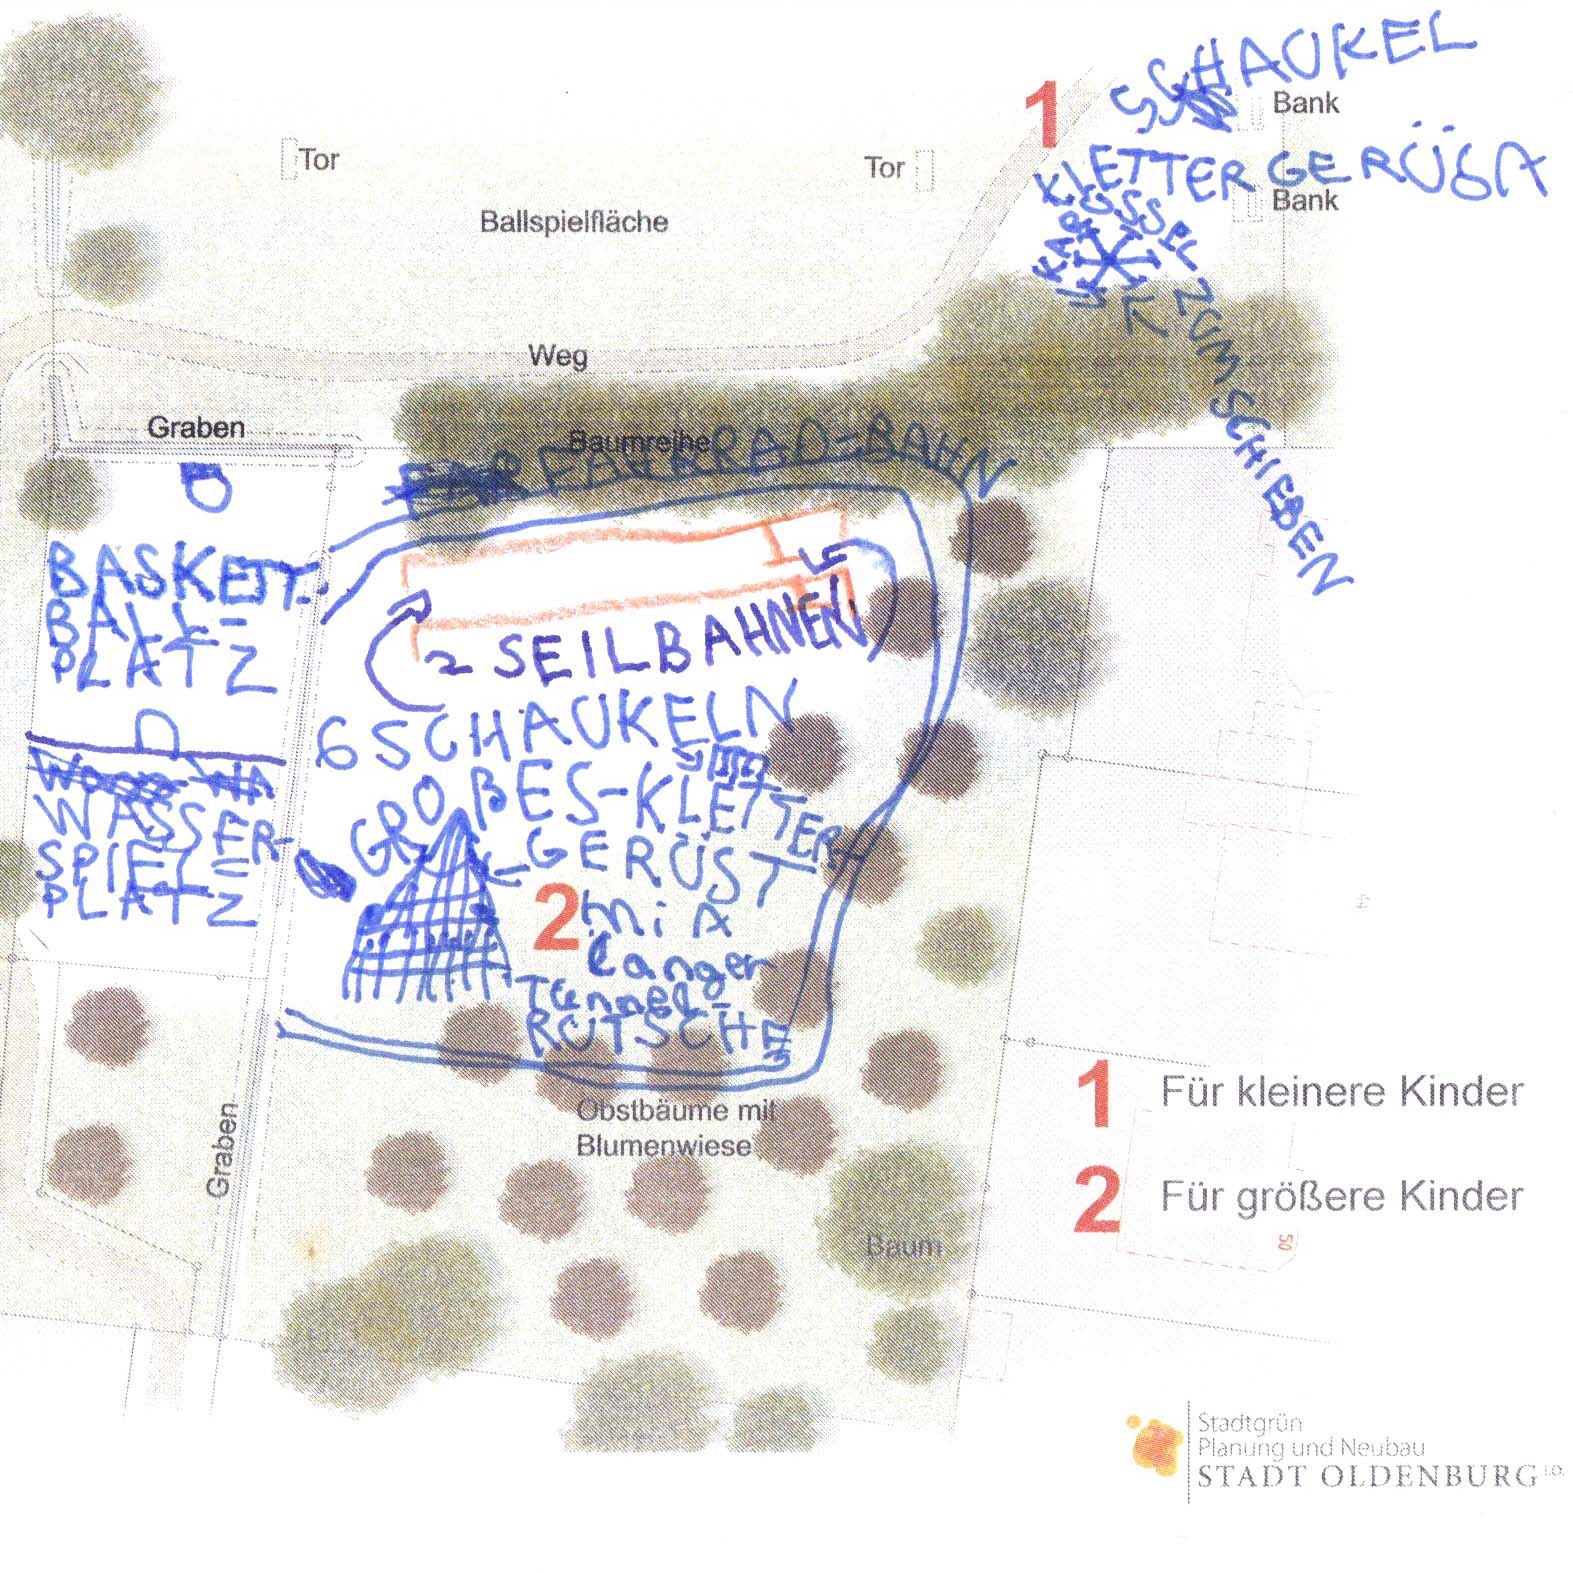 SCHAUKEL
1
Bank
Tor
Tor
KLETTERGERÜSA
Bank
Ballspielfläche
KARUSSEL
ZUM SCHIEBEN
Weg
Graben
Baumreihe
FAHRRAD-BAHN
BASKETT-
BALL-
PLATZ
2 SEILBAHNEN
6 SCHAUKELN
GROßES-KLETTER
GERÜST
2
MiA
langer
Tunnel-
RUTSCHE
WASSER-
SPIEL-
PLATZ
Obstbäume mit
Blumenwiese
Graben
Baum
1 Für kleinere Kinder
2 Für größere Kinder
50
Stadtgrün
Planung und Neubau
STADT OLDENBURG i.O.